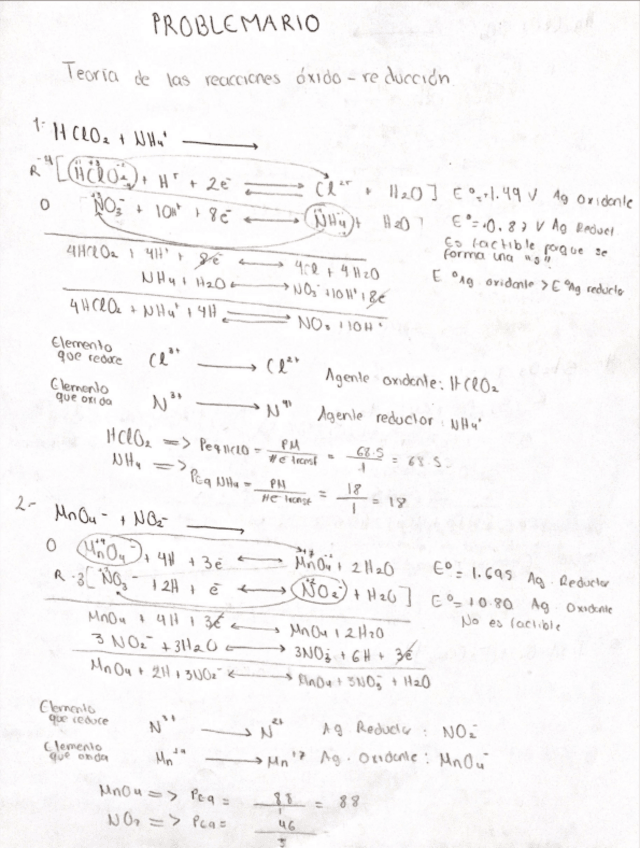 PROBLEMARIO
Teoría de las reacciones óxido-reducción
1- HClO₂ + NH₄⁺ →
R -4 [HClO₂ + H⁺ + 2e⁻ ⇌ Cl²⁺ + H₂O] E°=+1.49 V Ag Oxidante
O NO₃⁻ + 10H⁺ + 8e⁻ ⟷ NH₄ + H₂O E°=0.87 V Ag Reduct
Es factible porque se
forma una
4HClO₂ + 4H⁺ + 8e⁻ ⟷ 4Cl + 4H₂O
E° Ag. oxidante > E° Ag reducto
NH₄ + H₂O ⟷ NO₃⁻ + 10H⁺ + 8e⁻
4HClO₂ + NH₄⁺ + 4H ⇌ NO₃ + 10H⁺
Elemento
que reduce Cl³⁺ → Cl²⁺ Agente oxidante: HClO₂
Elemento
que oxida N³⁺ → N Agente reductor: NH₄⁺
HClO₂ => Peq HClO = PM / #e⁻ transf = 68.5 / 1 = 68.5
NH₄ => Peq NH₄ = PM / #e⁻ transf = 18 / 1 = 18
2.- MnO₄⁻ + NO₂⁻ →
O MnO₄⁻ + 4H + 3e⁻ ⟷ MnO₄ + 2H₂O E°= 1.695 Ag. Reductor
R -3[NO₃⁻ + 2H + e⁻ ⟷ NO₂⁻ + H₂O] E°=+0.80 Ag Oxidante
No es factible
MnO₄ + 4H + 3e⁻ ⟷ MnO₄ + 2H₂O
3 NO₂⁻ + 3H₂O ⟷ 3NO₃⁻ + 6H + 3e⁻
MnO₄ + 2H + 3NO₂⁻ ⟷ MnO₄ + 3NO₃⁻ + H₂O
Elemento
que reduce N³⁺ → N²⁺ Ag Reductor: NO₂⁻
Elemento
que oxida Mn → Mn⁺⁷ Ag. Oxidante: MnO₄⁻
MnO₄ => Peq = 88 / 1 = 88
NO₂ => Peq = 46